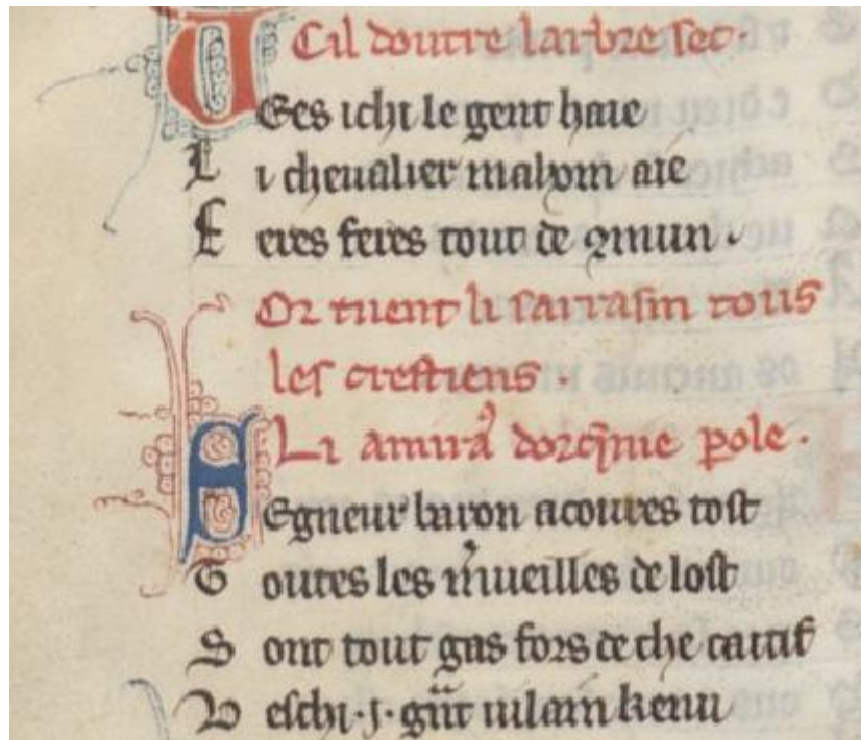 Cil doutre larbre sec·
VEes ichi le gent haie
Li cheualier mahom aie
Feres feres tout de ꝯmun·
Or tuent li sarrasin tous
les crestiens·
Li amiraꝰ dorqͥnie ꝑole·
AEgneur baron acoures tost
Toutes les m̾ueilles de lost
Sont tout gas fors de che caitif
Veschi·j·gͣnt uilain kenu